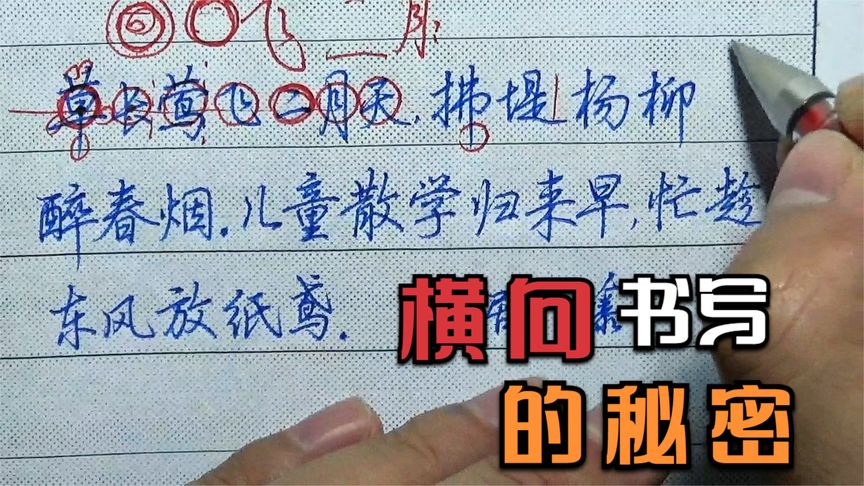 飞二月
草长莺飞二月天.拂堤杨柳
醉春烟.儿童散学归来早,忙趁
东风放纸鸢.
横向书写
的秘密